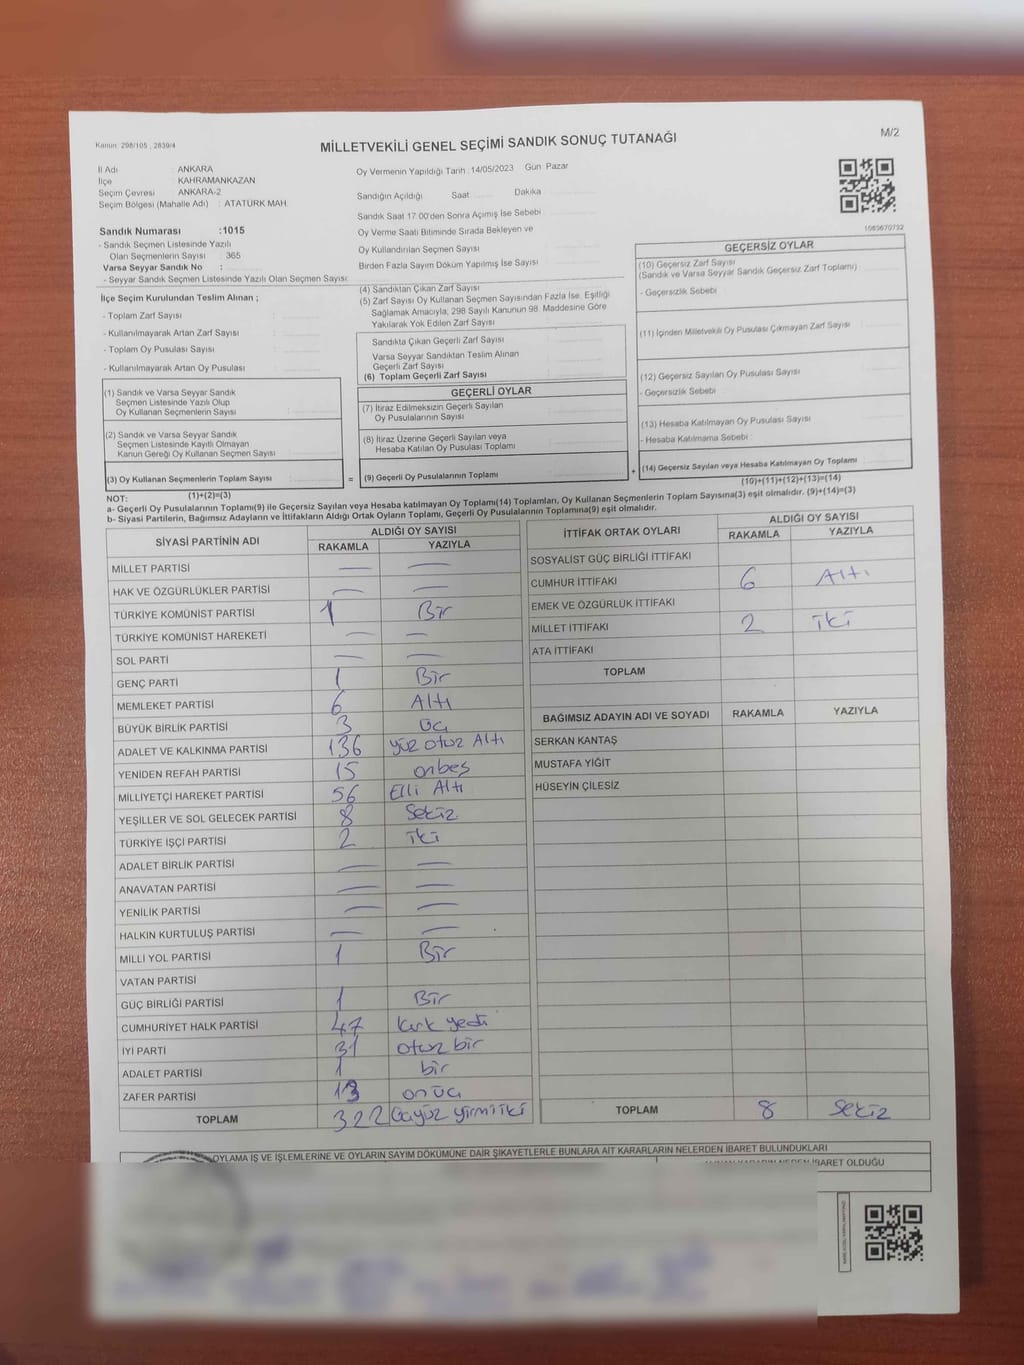 Kanun: 298/105 , 2839/4
MİLLETVEKİLİ GENEL SEÇİMİ SANDIK SONUÇ TUTANAĞI
M/2
İl Adı : ANKARA
İlçe : KAHRAMANKAZAN
Seçim Çevresi : ANKARA-2
Seçim Bölgesi (Mahalle Adı) : ATATÜRK MAH.
Oy Vermenin Yapıldığı Tarih :14/05/2023 Gün: Pazar
Sandığın Açıldığı Saat Dakika
Sandık Saat 17:00'den Sonra Açımış İse Sebebi
Oy Verme Saati Bitiminde Sırada Bekleyen ve
Oy Kullandırılan Seçmen Sayısı
Birden Fazla Sayım Döküm Yapılmış İse Sayısı
1083670732
Sandık Numarası :1015
- Sandık Seçmen Listesinde Yazılı
Olan Seçmenlerin Sayısı : 365
Varsa Seyyar Sandık No :
- Seyyar Sandık Seçmen Listesinde Yazılı Olan Seçmen Sayısı:
İlçe Seçim Kurulundan Teslim Alınan ;
- Toplam Zarf Sayısı :
- Kullanılmayarak Artan Zarf Sayısı :
- Toplam Oy Pusulası Sayısı :
- Kullanılmayarak Artan Oy Pusulası :
(1) Sandık ve Varsa Seyyar Sandık
Seçmen Listesinde Yazılı Olup
Oy Kullanan Seçmenlerin Sayısı :
(2) Sandık ve Varsa Seyyar Sandık
Seçmen Listesinde Kayıtlı Olmayan
Kanun Gereği Oy Kullanan Seçmen Sayısı :
(3) Oy Kullanan Seçmenlerin Toplam Sayısı :
(1)+(2)=(3)
(4) Sandıktan Çıkan Zarf Sayısı
(5) Zarf Sayısı Oy Kullanan Seçmen Sayısından Fazla İse, Eşitliği
Sağlamak Amacıyla, 298 Sayılı Kanunun 98. Maddesine Göre
Yakılarak Yok Edilen Zarf Sayısı
Sandıkta Çıkan Geçerli Zarf Sayısı
Varsa Seyyar Sandıktan Teslim Alınan
Geçerli Zarf Sayısı
(6) Toplam Geçerli Zarf Sayısı
GEÇERLİ OYLAR
(7) İtiraz Edilmeksizin Geçerli Sayılan
Oy Pusulalarının Sayısı
(8) İtiraz Üzerine Geçerli Sayılan veya
Hesaba Katılan Oy Pusulası Toplamı
= (9) Geçerli Oy Pusulalarının Toplamı
GEÇERSİZ OYLAR
(10) Geçersiz Zarf Sayısı
(Sandık ve Varsa Seyyar Sandık Geçersiz Zarf Toplamı)
- Geçersizlik Sebebi
(11) İçinden Milletvekili Oy Pusulası Çıkmayan Zarf Sayısı
(12) Geçersiz Sayılan Oy Pusulası Sayısı
- Geçersizlik Sebebi
(13) Hesaba Katılmayan Oy Pusulası Sayısı
- Hesaba Katılmama Sebebi :
+ (14) Geçersiz Sayılan veya Hesaba Katılmayan Oy Toplamı
(10)+(11)+(12)+(13)=(14)
NOT:
a- Geçerli Oy Pusulalarının Toplamı(9) ile Geçersiz Sayılan veya Hesaba katılmayan Oy Toplamı(14) Toplamları, Oy Kullanan Seçmenlerin Toplam Sayısına(3) eşit olmalıdır. (9)+(14)=(3)
b- Siyasi Partilerin, Bağımsız Adayların ve İttifakların Aldığı Ortak Oyların Toplamı, Geçerli Oy Pusulalarının Toplamına(9) eşit olmalıdır.
SİYASİ PARTİNİN ADI ALDIĞI OY SAYISI
RAKAMLA YAZIYLA
MİLLET PARTİSI — —
HAK VE ÖZGÜRLÜKLER PARTİSİ — —
TÜRKİYE KOMÜNİST PARTİSİ 1 Bir
TÜRKİYE KOMÜNİST HAREKETİ — —
SOL PARTİ — —
GENÇ PARTİ 1 Bir
MEMLEKET PARTİSİ 6 Altı
BÜYÜK BİRLİK PARTİSİ 3 üç
ADALET VE KALKINMA PARTİSİ 136 yüz otuz Altı
YENİDEN REFAH PARTİSİ 15 onbeş
MİLLİYETÇİ HAREKET PARTİSİ 56 Elli Altı
YEŞİLLER VE SOL GELECEK PARTİSİ 8 Sekiz
TÜRKİYE İŞÇİ PARTİSİ 2 iki
ADALET BİRLİK PARTİSİ — —
ANAVATAN PARTİSİ — —
YENİLİK PARTİSİ — —
HALKIN KURTULUŞ PARTİSİ — —
MİLLİ YOL PARTİSİ 1 Bir
VATAN PARTİSİ
GÜÇ BİRLİĞİ PARTİSİ 1 Bir
CUMHURİYET HALK PARTİSİ 47 kırk yedi
İYİ PARTİ 31 otuz bir
ADALET PARTİSİ 1 bir
ZAFER PARTİSİ 13 onüç
TOPLAM 322 üçyüz yirmi iki
İTTİFAK ORTAK OYLARI ALDIĞI OY SAYISI
RAKAMLA YAZIYLA
SOSYALİST GÜÇ BİRLİĞİ İTTİFAKI
CUMHUR İTTİFAKI 6 Altı
EMEK VE ÖZGÜRLÜK İTTİFAKI
MİLLET İTTİFAKI 2 iki
ATA İTTİFAKI
TOPLAM
BAĞIMSIZ ADAYIN ADI VE SOYADI RAKAMLA YAZIYLA
SERKAN KANTAŞ
MUSTAFA YİĞİT
HÜSEYİN ÇİLESİZ
TOPLAM 8 Sekiz
OYLAMA İŞ VE İŞLEMLERİNE VE OYLARIN SAYIM DÖKÜMÜNE DAİR ŞİKAYETLERLE BUNLARA AİT KARARLARIN NELERDEN İBARET BULUNDUKLARI
İBARET OLDUĞU